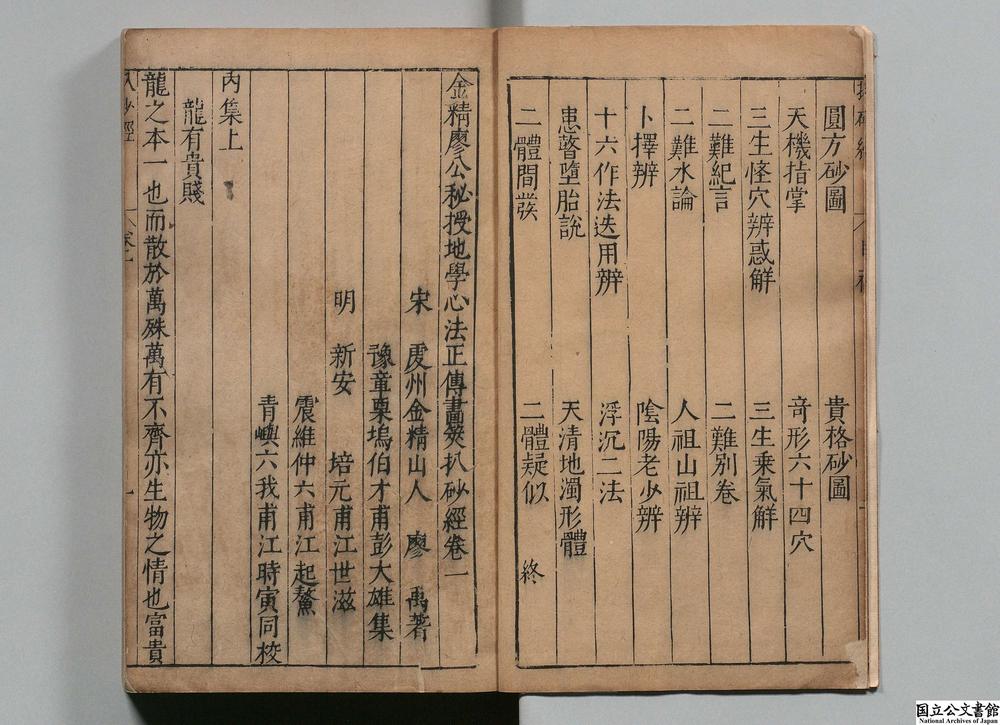 圓方砂圖　貴格砂圖
天機指掌　竒形六十四穴
三生怪穴辨惑解　三生乗氣解
二難紀言　二難別卷
二難水論　人祖山祖辨
卜擇辨　陰陽老少辨
十六作法迭用辨　浮沉二法
恵瞽墮胎說　天清地濁形體
二體間發　二體疑似　終
金精廖公秘授地學心法正傳畫筴扒砂經卷一
宋　虔州金精山人　廖　禹著
豫章栗塢伯才甫彭大雄集
明　新安　培元甫江世滋
震維仲六甫江起鰲
青嶼六我甫江時寅同校
內集上
龍有貴賤
龍之本一也而散於萬殊萬有不齊亦生物之情也富貴
国立公文書館
National Archives of Japan